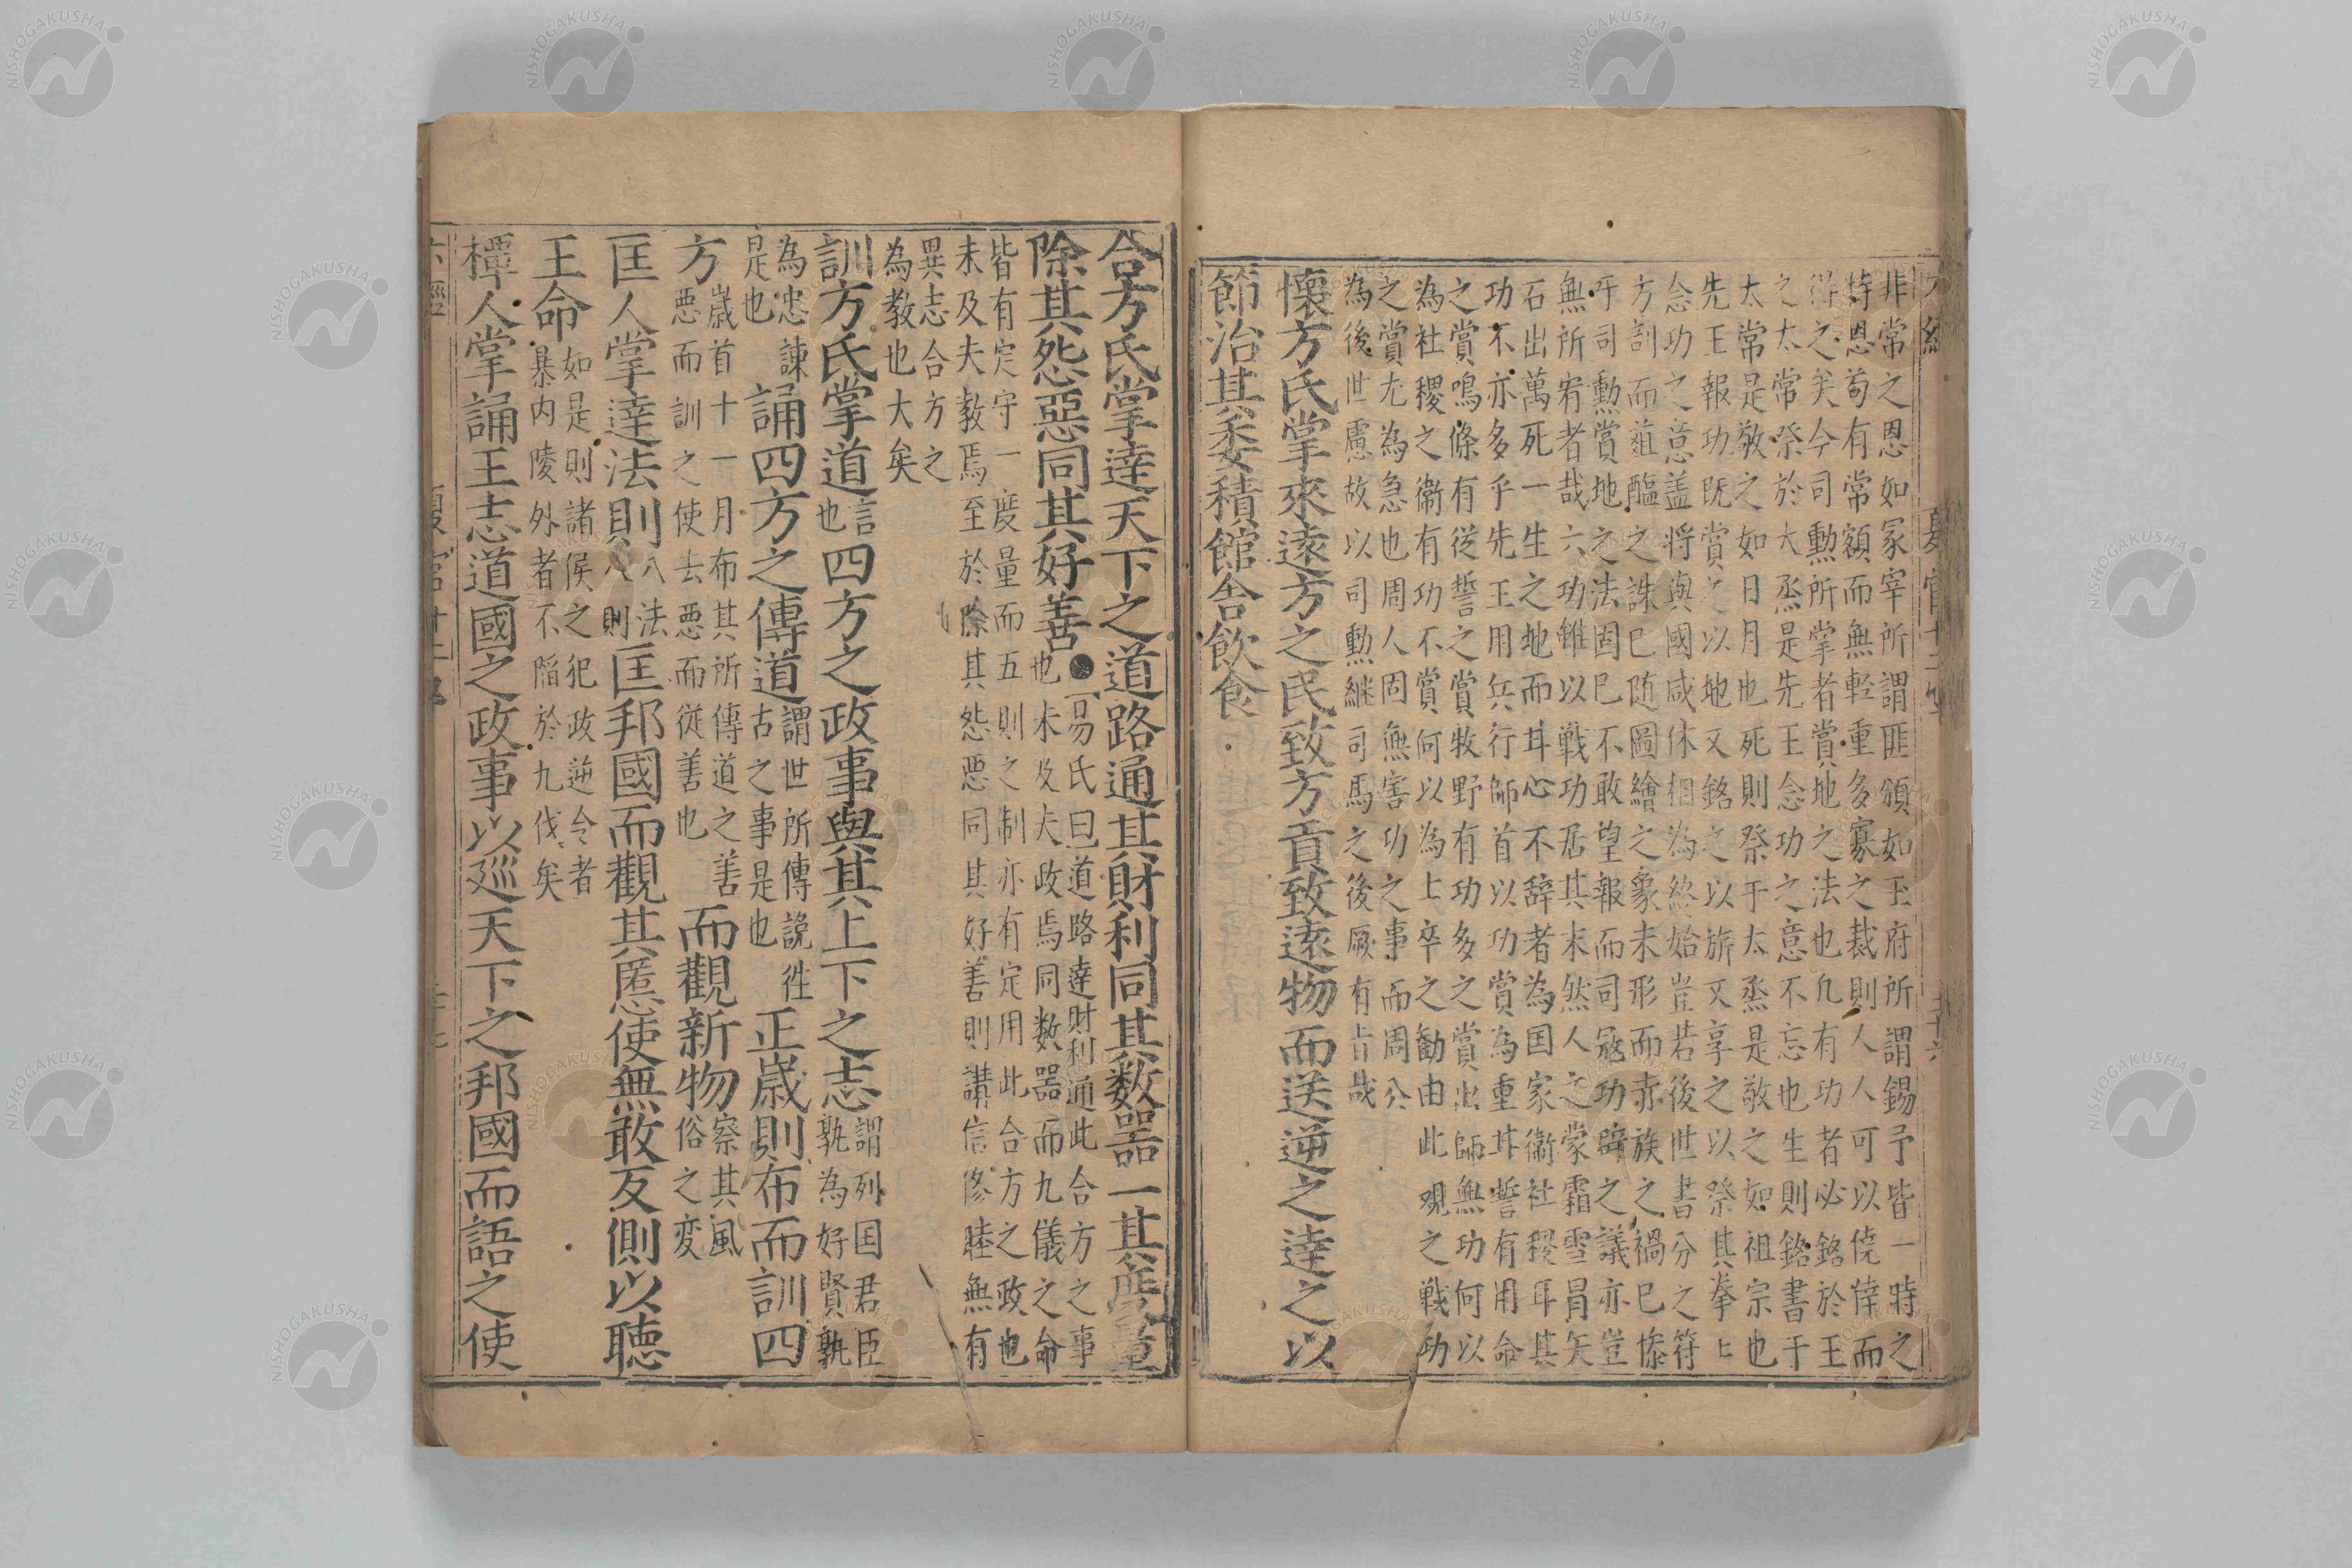 非常之恩如冢宰所謂匪頒如玉府所謂錫予皆一時之
特恩苟有常額而無軽重多寡之裁則人人可以僥倖而
得之矣今司勲所掌者賞地之法也凢有功者必銘於王
之太常祭於大烝是先王念功之意不忘也生則銘書于
太常是敬之如日月也死則祭于太烝是敬之如祖宗也
先王報功既賞之以地又銘之以旂又享之以祭其拳上
念功之意盖將與國咸休相為終始豈若後世書分之符
方訓而葅醢之誅已随圖繪之象未形而赤族之禍已慘
乎司勲賞地之法固已不敢望報而司冦功辟之議亦豈
無所宥者哉六功雖以戦功居其末然人之蒙霜雪冐矢
石出萬死一生之地而其心不辞者為国家衞社稷耳其
功不亦多乎先王用兵行師首以功賞為重其誓有用命
之賞鳴條有從誓之賞牧野有功多之賞出師無功何以
為社稷之衞有功不賞何以為上卒之勸由此观之戦功
之賞尤為急也周人固無害功之事而周公
為後世慮故以司勲継司馬之後厥有旨哉
懷方氏掌來逺方之民致方貢致逺物而送逆之達之以
節治其委積館舎飲食
合方氏掌達天下之道路通其財利同其数器一其度量
除其怨惡同其好善
易氏曰道路達財利通此合方之事
也未及夫政焉同数器而九儀之命
皆有定守一度量而五則之制亦有定用此合方之政也
未及夫教焉至於除其怨悪同其好善則講信修睦無有
異志合方之
為教也大矣
訓方氏掌道言也四方之政事與其上下之志謂列国君臣孰為好賢孰
為忠諫是也誦四方之傳道謂世所傳說徃古之事是也正嵗則布而訓四
方嵗首十一月布其所傳道之善悪而訓之使去悪而従善也而觀新物察其風俗之変
匡人掌達法則八法八則匡邦國而觀其慝使無敢反側以聴
王命如是則諸侯之犯政逆令者暴内陵外者不陥於九伐矣
撢人掌誦王志道國之政事以廵天下之邦國而語之使